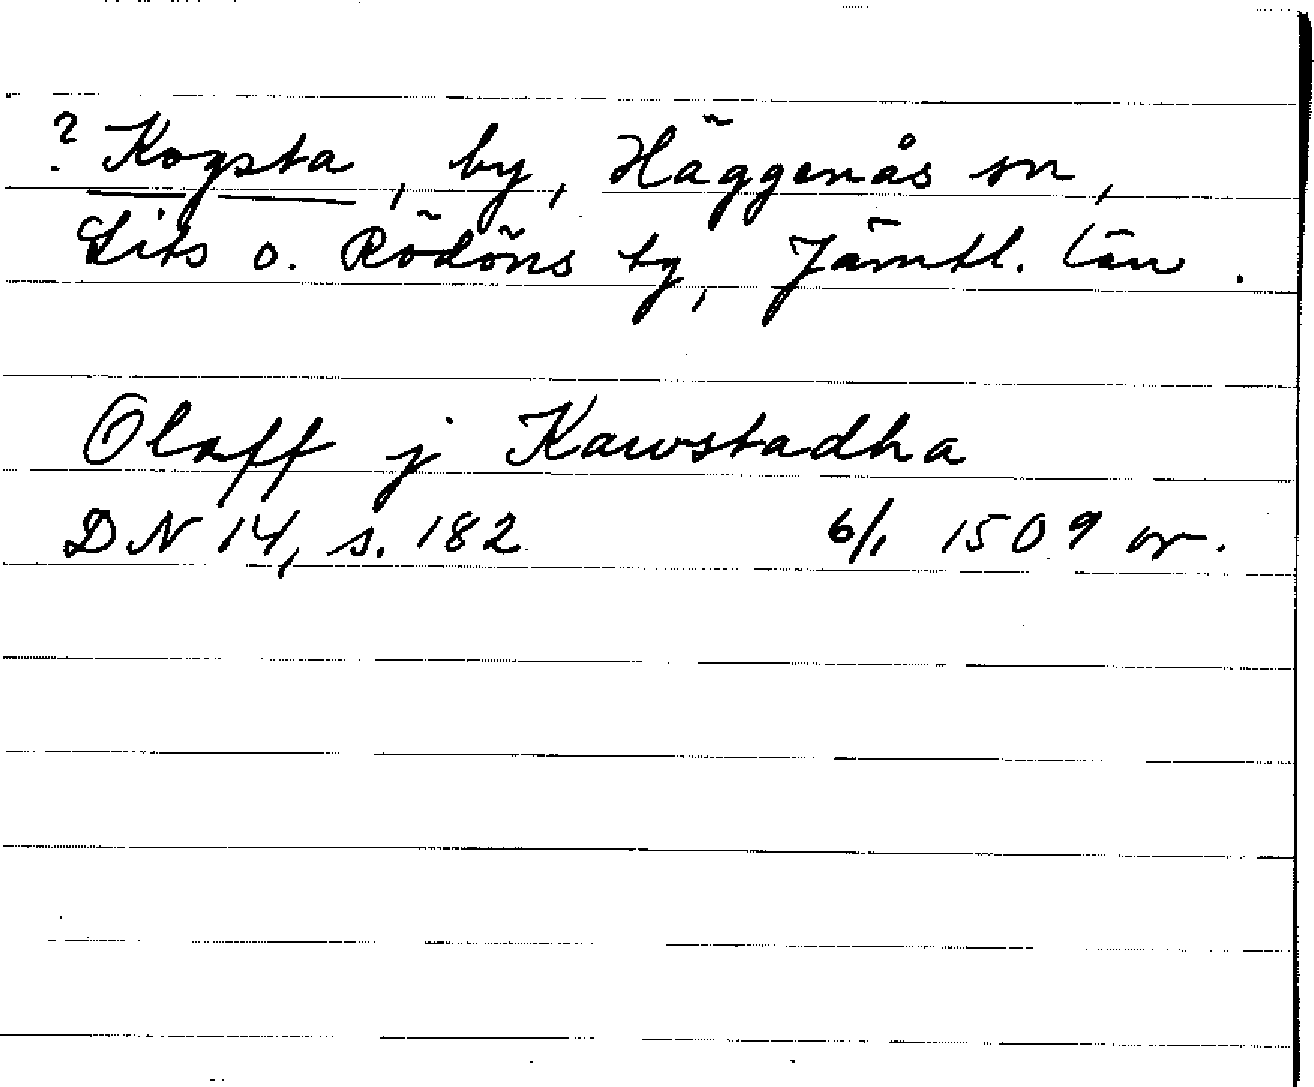 ? Kogsta, by, Häggenås sn,
Lits o. Rödöns tg, Jämtl. län.
Olaff j Kawstadha
DN 14, s. 182 6/1 1509 or.